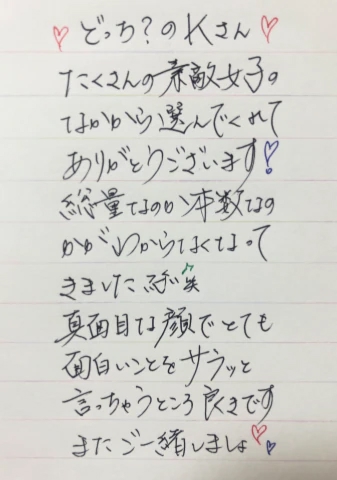 どっち?のKさん
たくさんの素敵女子の
なかから選んでくれて
ありがとうございます!
総量なのか本数なの
かがわからなくなって
きました 笑
真面目な顔でとても
面白いことをサラッと
言っちゃうところ良きです
またご一緒しましょ